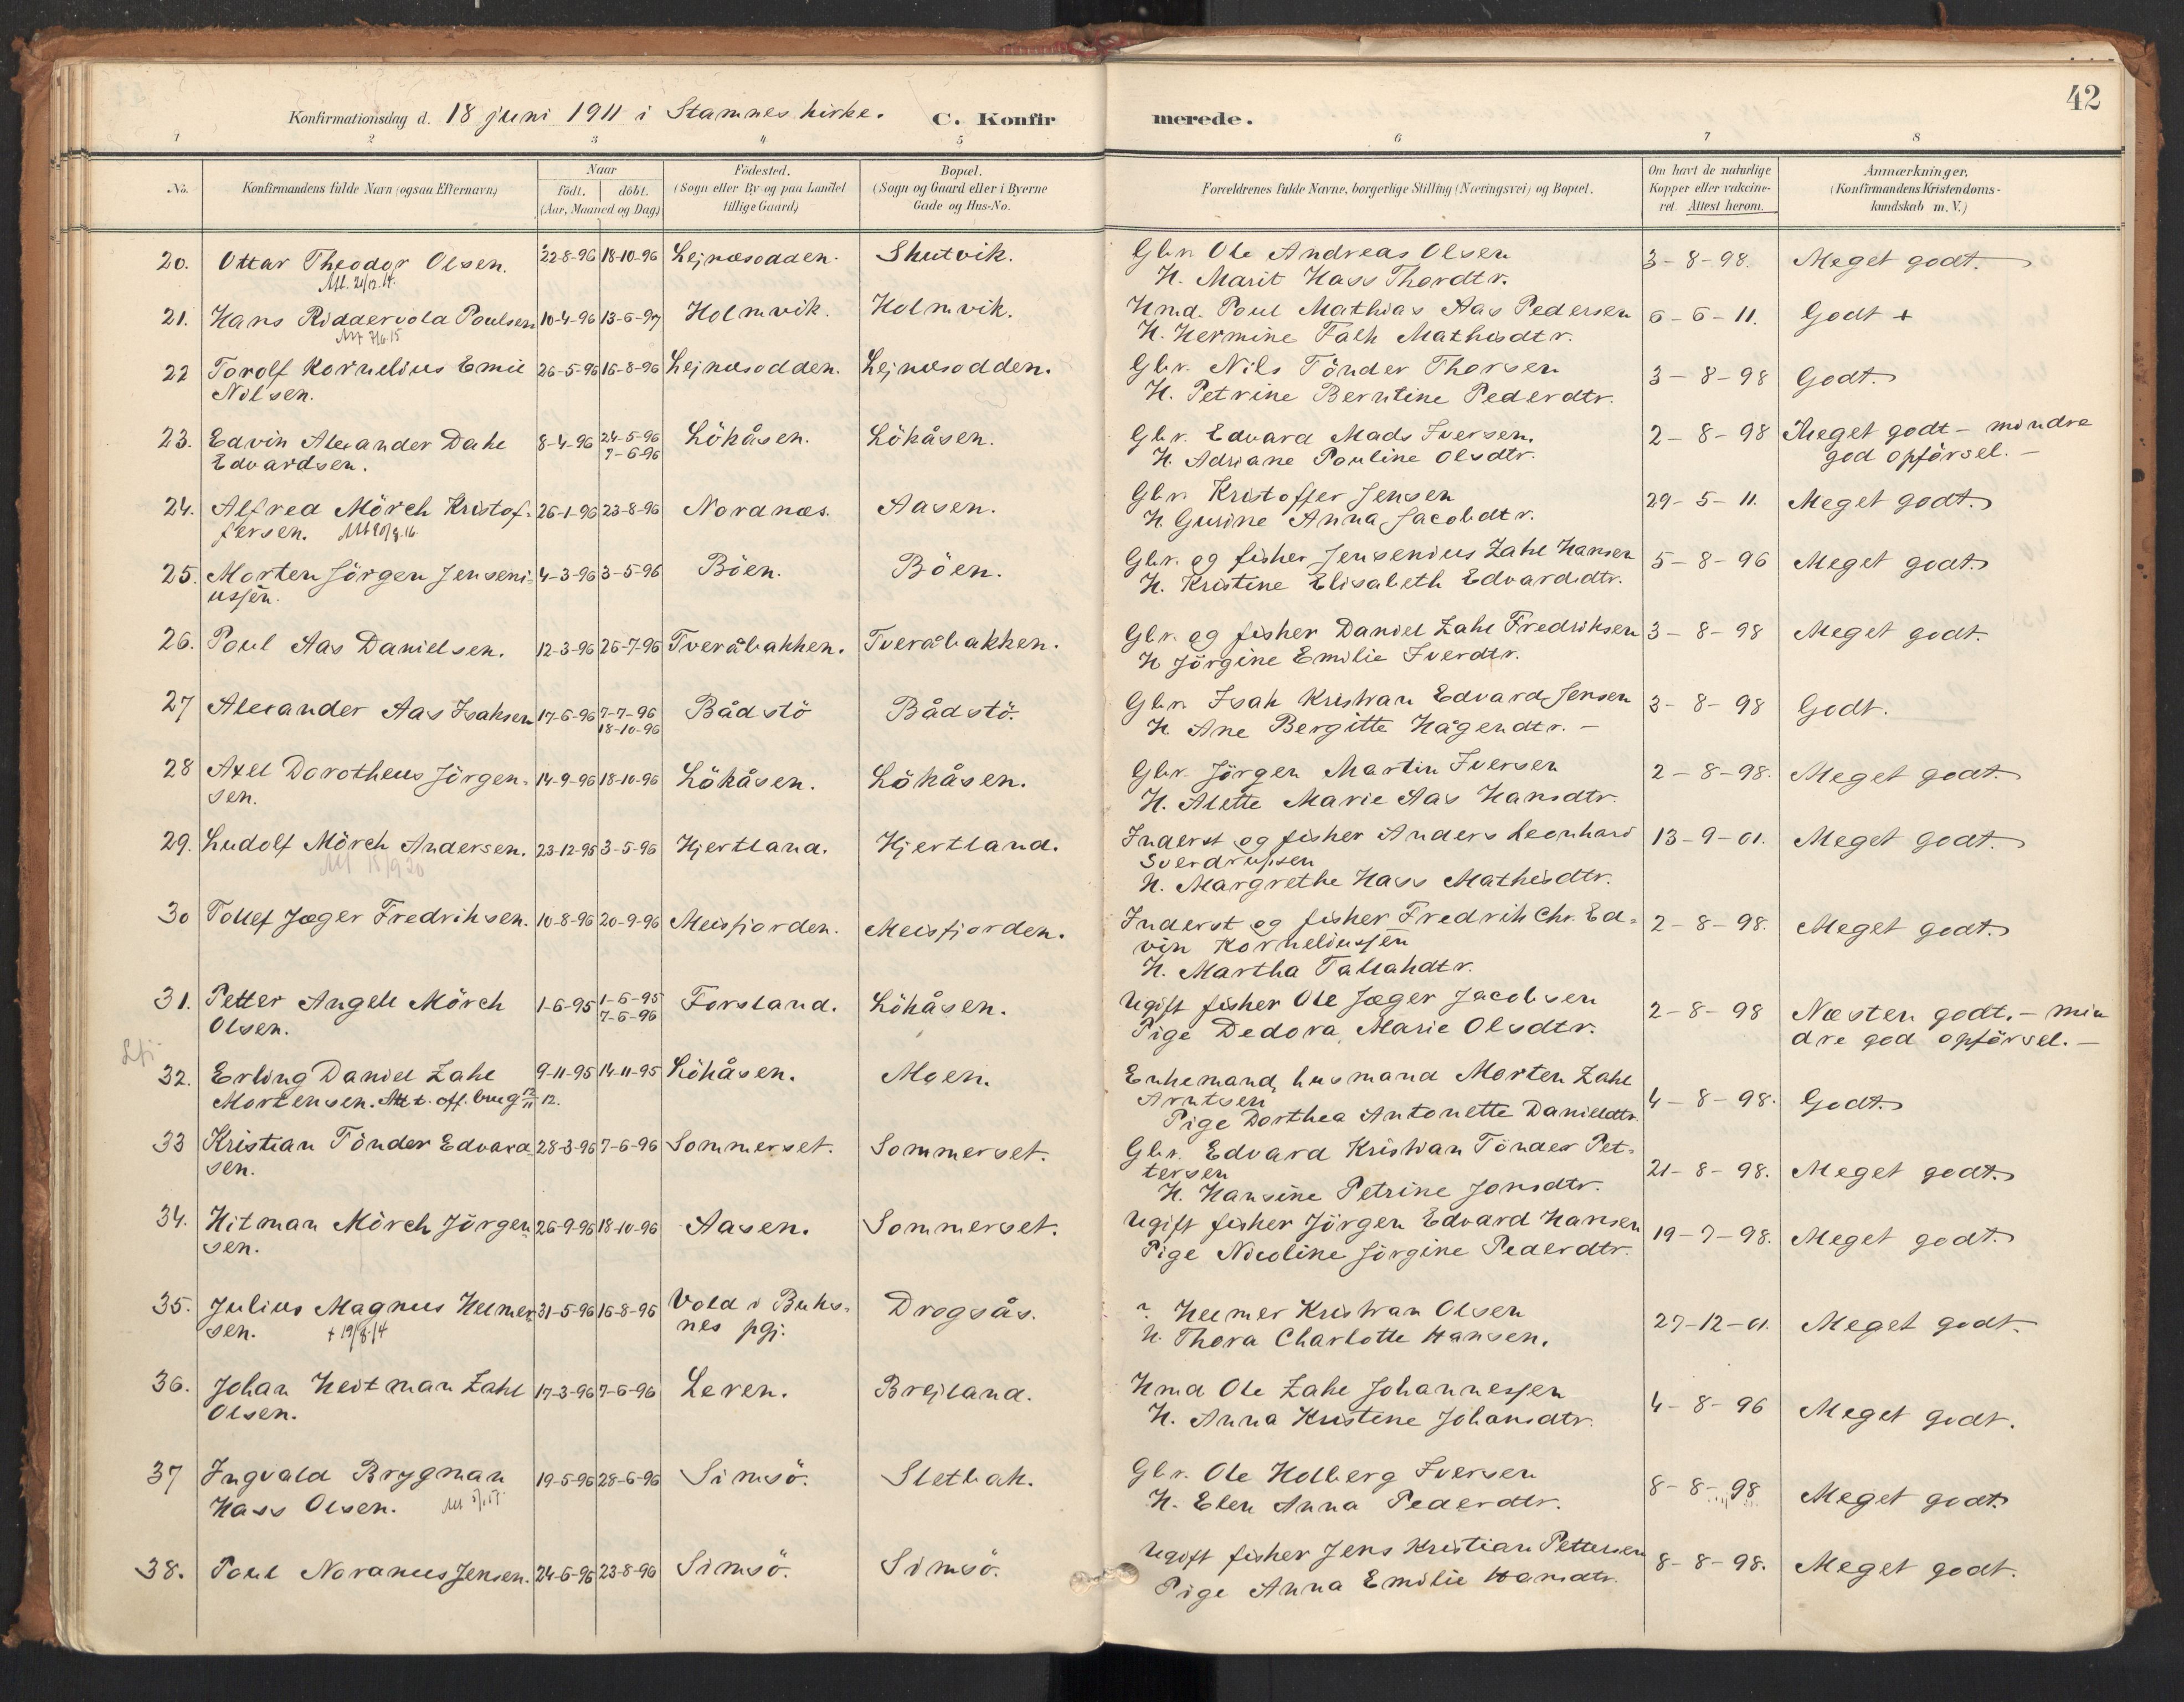 42
Konfirmationsdag d. 18 juni 1911 i Stamnes kirke. C. Konfir merede.
1 2 3 4 5 6 7 8
No. Konfirmandens fulde Navn (ogsaa Efternavn) Naar födt. döbt. (Aar, Maaned og Dag) Födested. (Sogn eller By og paa Landet tillige Gaard) Bopæl. (Sogn og Gaard eller i Byerne Gade og Hus-No. Forældrenes fulde Navne, borgerlige Stilling (Næringsvei) og Bopæl. Om havt de naturlige Kopper eller vakcineret. Attest herom. Anmærkninger, (Konfirmandens Kristendomskundskab m. V.)
20. Ottar Theodor Olsen. 22-8-96 18-10-96 Lejnæsodden. Skutvik. Gbr. Ole Andreas Olsen 3-8-98. Meget godt.
H. Marit Hass Thordtr.
21. Hans Riddervold Poulsen 10-4-96 13-6-97 Holmvik. Holmvik. Hmd. Poul Mathias Aas Pedersen 6-6-11. Godt +
H. Hermine Falk Mathisdtr.
22 Torolf Kornelius Emil 26-5-96 16-8-96 Lejnæsodden. Lejnæsodden. Gbr. Nils Tönder Thorsen 3-8-98 Godt.
Nilsen. H. Petrine Berntine Pederdtr.
23. Edvin Alexander Dahl 8-4-96 24-5-96 Lökåsen. Lökåsen. Gbr. Edvard Mads Iversen. 2-8-98 Meget godt - mindre
Edvardsen. 7-6-96 H. Adriane Pouline Olsdtr. god opförsel. -
24. Alfred Mörch Kristof- 26-1-96 23-8-96 Nordnæs. Aasen. Gbr. Kristoffer Jensen 29-5-11. Meget godt.
fersen. H. Gurine Anna Jacobdtr.
25. Morten Jörgen Jenseni- 4-3-96 3-5-96 Böen. Böen. Gbr. og fisker Jensenius Zahl Hansen 5-8-96 Meget godt.
ussen. H. Kristine Elisabeth Edvardsdtr.
26. Poul Aas Danielsen. 12-3-96 26-7-96 Tveråbakken. Tveråbakken. Gbr. og fisker Daniel Zahl Fredriksen 3-8-98 Meget godt.
H Jörgine Emilie Iverdtr.
27 Alexander Aas Isaksen 17-6-96 7-7-96 Bådstö Bådstö. Gbr. Isak Kristian Edvard Jensen 3-8-98 Godt.
18-10-96 H. Ane Bergitte Hågendtr. -
28 Axel Dorotheus Jörgen- 14-9-96 18-10-96 Lökåsen. Lökåsen. Gbr. Jörgen Martin Iversen 2-8-98. Meget godt.
sen. H. Alette Marie Aas Hansdtr.
29. Ludolf Mörch Andersen. 23-12-95 3-5-96 Hjertland. Hjertland. Inderst og fisker Anders Leonhard 13-9-01. Meget godt.
Sverdrupsen
H. Margrethe Hass Mathisdtr.
30 Tollef Jæger Fredriksen. 10-8-96 20-9-96 Meisfjorden. Meisfjorden. Inderst og fisker Fredrik Chr. Ed- 2-8-98. Meget godt.
vin Korneliussen
H. Martha Tallakdtr.
31. Petter Angell Mörch 1-6-95 1-6-95 Forsland. Lökåsen. Ugift fisker Ole Jæger Jacobsen 2-8-98 Næsten godt. - min
Olsen. 7-6-96 Pige Dedora Marie Olsdtr. dre god opförsel. -
32. Erling Daniel Zahl 9-11-95 14-11-95 Lökåsen. Moen. Enkemand, husmand Morten Zahl 4-8-98. Godt.
Mortensen. Att t. off. brug 12/11 12. Arntsen
Pige Dorthea Antonette Danielsdtr.
33 Kristian Tönder Edvard 28-3-96 7-6-96 Sommerset. Sommerset. Gbr. Edvard Kristian Tönder Pet- 21-8-98. Meget godt.
sen. tersen
H. Hansine Petrine Jonsdtr.
34. Hitman Mörch Jörgen 26-9-96 18-10-96 Aasen. Sommerset. Ugift fisker Jörgen Edvard Hansen 19-7-98. Meget godt.
sen. Pige Nicoline Jörgine Pederdtr.
35. Julius Magnus Helmer 31-5-96 16-8-96 Vold i Buks- Drogsås. ? Helmer Kristian Olsen 27-12-01. Meget godt.
sen. + 19/8.14 nes pgj. H. Thora Charlotte Hansen.
36. Johan Heitman Zahl 17-3-96 7-6-96 Leren. Brejland. Hmd Ole Zahl Johannessen 4-8-96 Meget godt.
Olsen. H. Anna Kristine Johansdtr.
37 Ingvald Brygman 19-5-96 28-6-96 Simsö. Sletbak. Gbr. Ole Holberg Iversen 8-8-98 Meget godt.
Hass Olsen. H. Elen Anna Pederdtr.
38. Poul Nordnus Jensen. 24-6-96 23-8-96 Simsö. Simsö. Ugift fisker Jens Kristian Pettersen 8-8-98. Meget godt.
Pige Anna Emilie Hansdtr.